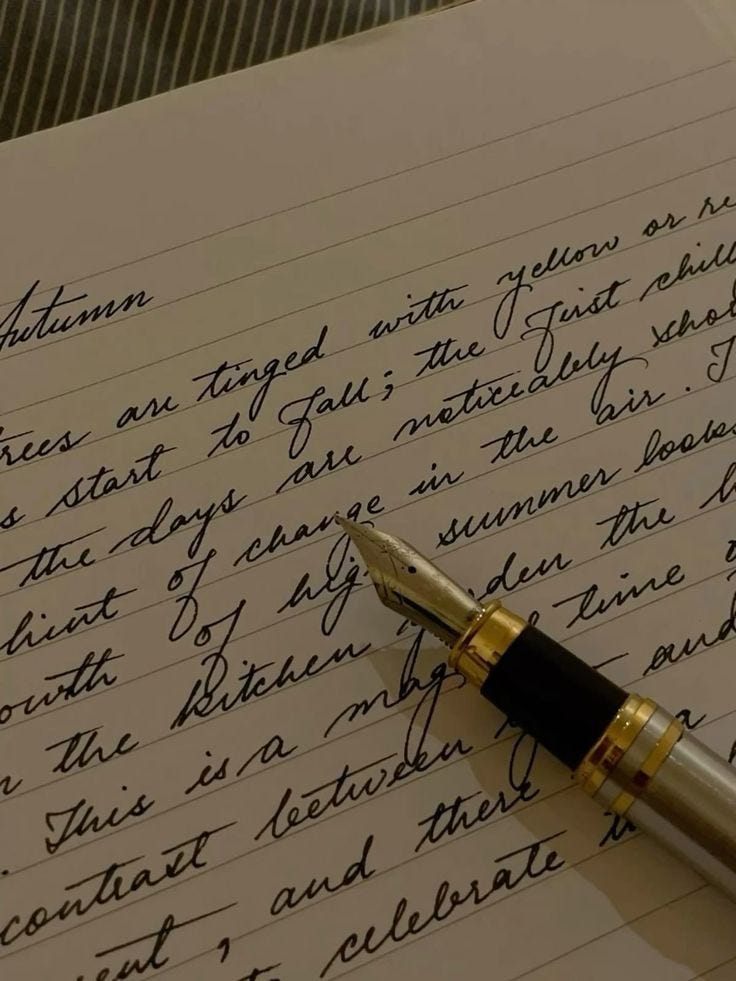 Autumn
trees are tinged with yellow or
start to fall; the first chill
the days are noticeably
hint of change in the air.
of high summer looks
the kitchen the
This is a time
contrast between and
and there
celebrate